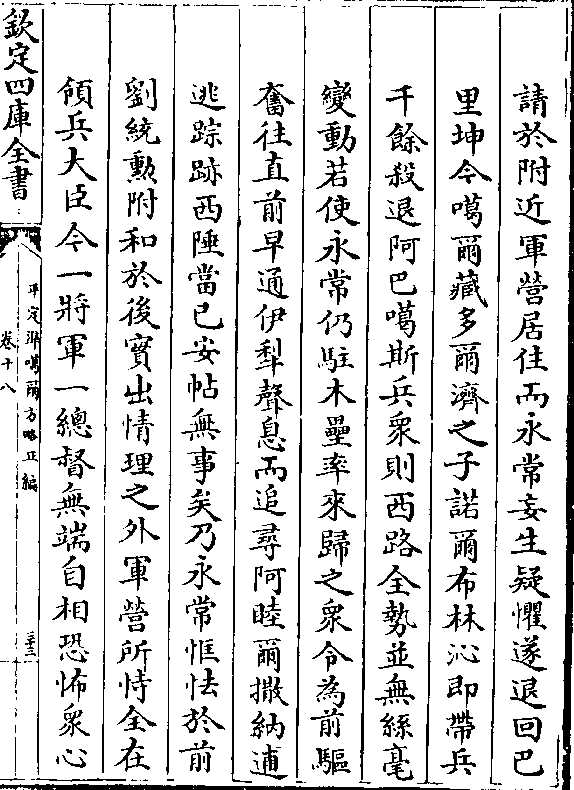 請於附近軍營居住而永常妄生疑懼遂退回巴
里坤今噶爾藏多爾濟之子諾爾布林沁即帶兵
千餘殺退阿巴噶斯兵衆則西路全勢並無絲毫
變動若使永常仍駐木壘率來歸之衆令為前驅
奮往直前早通伊犁聲息而追尋阿睦爾撒納逋
逃踪跡西陲當已安帖無事矣乃永常恇怯於前
劉統勳附和於後實出情理之外軍營所恃全在
領兵大臣今一將軍一總督無端自相恐怖衆心
欽定四庫全書
平定凖噶爾方略正編
卷十八
三十三